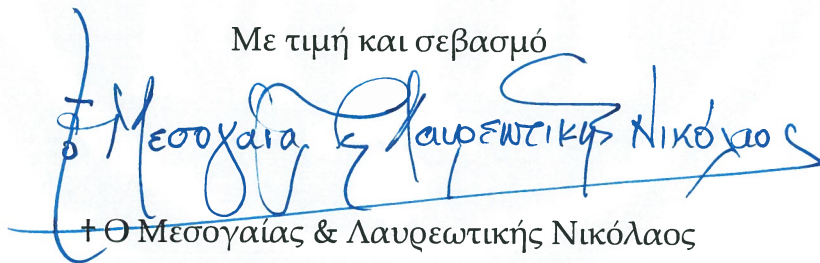 Με τιμή και σεβασμό
† ὁ Μεσογαίας & Λαυρεωτικῆς Νικόλαος
† Ο Μεσογαίας & Λαυρεωτικής Νικόλαος